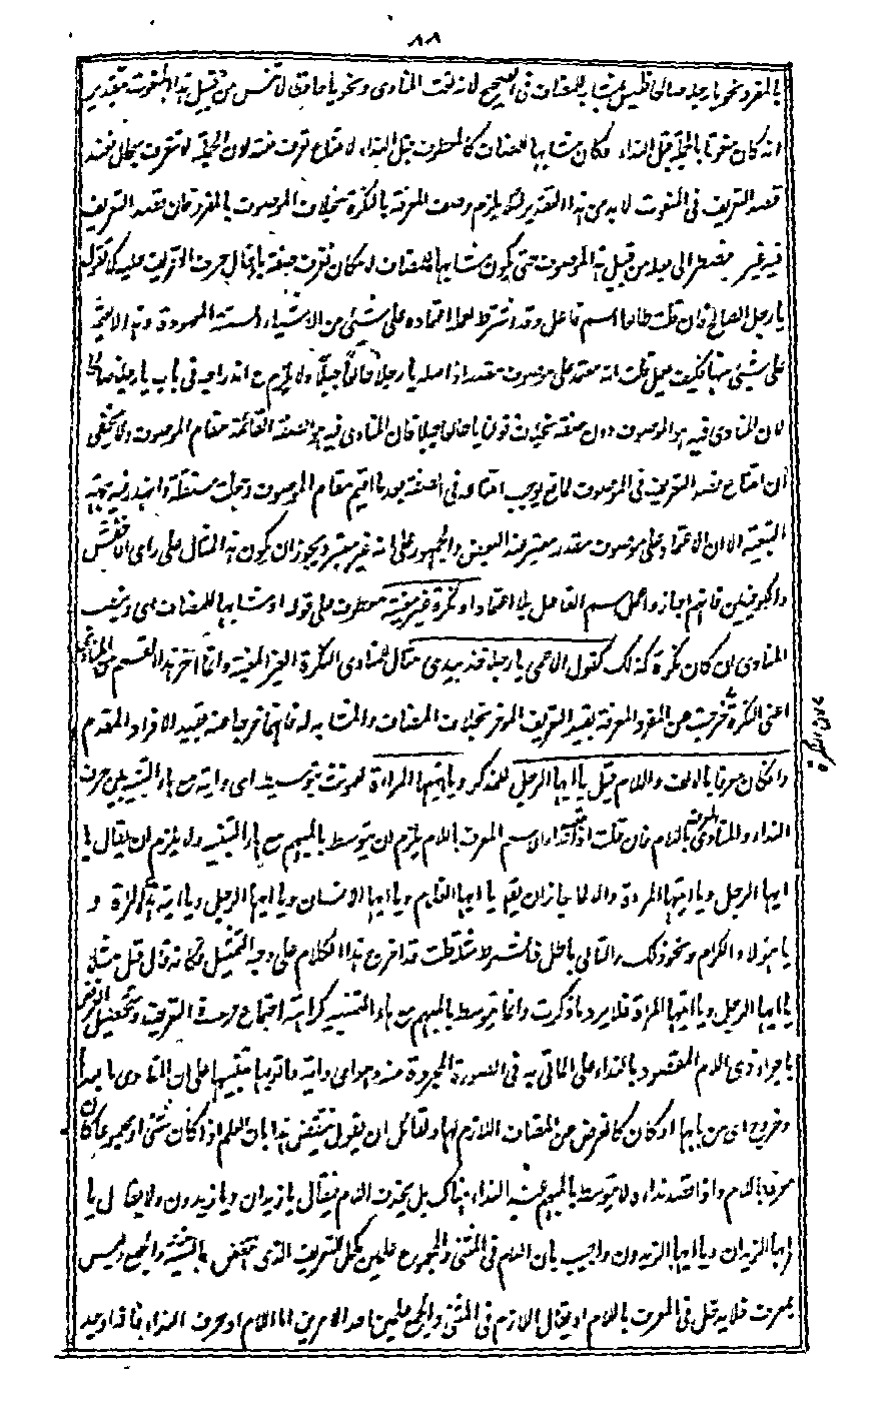 ٨٨
بالمفرد نحو يا رجلا صالحا ظريفا مشابه للمضاف في الصحيح لا نعت المنادى ونحو يا حاذقا لا تنس من قبيل هذا المنعوت
انه كان منعوتا بالجملة قبل النداء وكان مشابها للمضاف كالمعطوف قبل النداء لامتناع تعرف صفته لان الجملة لا تتعرف بحال فقصد
قصد التعريف في المنعوت لا بد من هذا التقدير لئلا يلزم وصف المعرفة بالنكرة بخلاف الموصوف بالمفرد فان قصد التعريف
فيه غير مضطر الى جعله من قبيل الموصوف حتى يكون مشابها للمضاف لامكان تعرف صفته بادخال حرف التعريف عليه كما تقول
يا رجل الصالح فان قلت طالعا اسم فاعل وقد اشترط لعمله اعتماده على شيء من الاشياء الستة المعهودة ولا اعتماد
على شيء هنا فكيف عمل قلت انه معتمد على موصوف مقدر اذ اصله يا رجلا طالعا جبلا ولا يلزم اندراجه في باب يا رجلا صالحا
لان المنادى فيه هو الموصوف دون صفته بخلاف قولنا يا طالعا جبلا فان المنادى فيه هو الصفة القائمة مقام الموصوف ولا يخفى
ان امتناع قصد التعريف في الموصوف لمانع يوجب امتناعه في الصفة بعد ما اقيم مقام الموصوف وجعلت مستقلة
التبعية الا ان الاعتماد على موصوف مقدر معتبر عند البعض والجمهور على انه غير معتبر ويجوز ان يكون هذا المثال على راى الاخفش
والكوفيين فانهم اجازوا عمل اسم الفاعل بلا اعتماد او نكرة غير معينة معطوف على قوله او مشابها للمضاف اى وينصب
المنادى ان كان نكرة كذلك كقول الاعمى يا رجلا خذ بيدى مثال للمنادى النكرة الغير المعينة وانما اخر هذا القسم من المنادى
اعنى النكرة خرجت عن المفرد المعرفة بقيد التعريف المؤخر بخلاف المضاف والمشابه له فانهما خرجا عنه بقيد الافراد المقدم
لان النكرة
وان كان معرفا بالالف واللام قيل يا ايها الرجل للمذكر ويا ايتها المراة للمؤنث بتوسيط اى واية مع هاء التنبيه بين حرف
النداء والمنادى المعرف باللام فان قلت اذا قصد نداء الاسم المعرف باللام يلزم ان يتوسط بالمبهم مع هاء التنبيه ولا يلزم ان يقال يا
ايها الرجل ويا ايتها المراة والا لما جاز ان يقال يا ايها القائم ويا ايها الانسان ويا ايهذا الرجل ويا ايته هذه المراة و
يا هؤلاء الكرام ونحو ذلك والتالى باطل فالشرط مثله قلت قد افرغ هذا الكلام على وجه التمثيل فكانه قال قيل مثلا
يا ايها الرجل ويا ايتها المراة فلا يرد ما ذكرت وانما يتوسط بالمبهم مع هاء التنبيه كراهة اجتماع حرفى التعريف
باجراء ذى اللام المقصود بالنداء على الماتى به في الصورة المجردة عنه وهو اى واية وهاتوبها تنبيها على ان المنادى ما بعدها
وخروج اى من بابها اذ كان كالعوض عن المضاف اللازم لها ولقائل ان يقول ينتقض هذا بان العلم اذا كان مثنى او مجموعا كان
معرفا باللام واذا قصد نداءه لا يتوسط بالمبهم هناك بل يحذف اللام فيقال يا زيدان ويا زيدون ولا يقال يا
ايها الزيدان ويا ايها الزيدون واجيب بان اللام في المثنى والمجموع علمين محل للتعريف الذى انتقض بالتثنية والجمع وليس
بمعرف فلا يدخل في المعرف باللام او يقال اللازم في المثنى والجمع علمين احد الامرين اما اللام او حرف النداء فاذا وجد